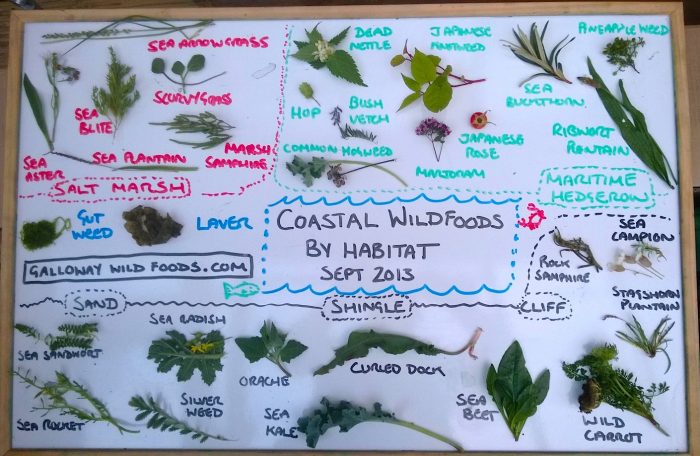 SEA ARROWGRASS
SCURVYGRASS
SEA
BLITE
SEA
ASTER
SEA PLANTAIN
MARSH
SAMPHIRE
SALT MARSH
DEAD
NETTLE
JAPANESE
KNOTWEED
PINEAPPLE WEED
SEA
BUCKTHORN
HOP
BUSH
VETCH
COMMON HOGWEED
MARJORAM
JAPANESE
ROSE
RIBWORT
PLANTAIN
MARITIME
HEDGEROW
GUT
WEED
LAVER
GALLOWAY WILD FOODS.COM
COASTAL WILDFOODS
BY HABITAT
SEPT 2013
SEA
CAMPION
ROCK
SAMPHIRE
STAGSHORN
PLANTAIN
CLIFF
SAND
SHINGLE
SEA SANDWORT
SEA RADISH
ORACHE
CURLED DOCK
SEA ROCKET
SILVER
WEED
SEA
KALE
SEA
BEET
WILD
CARROT